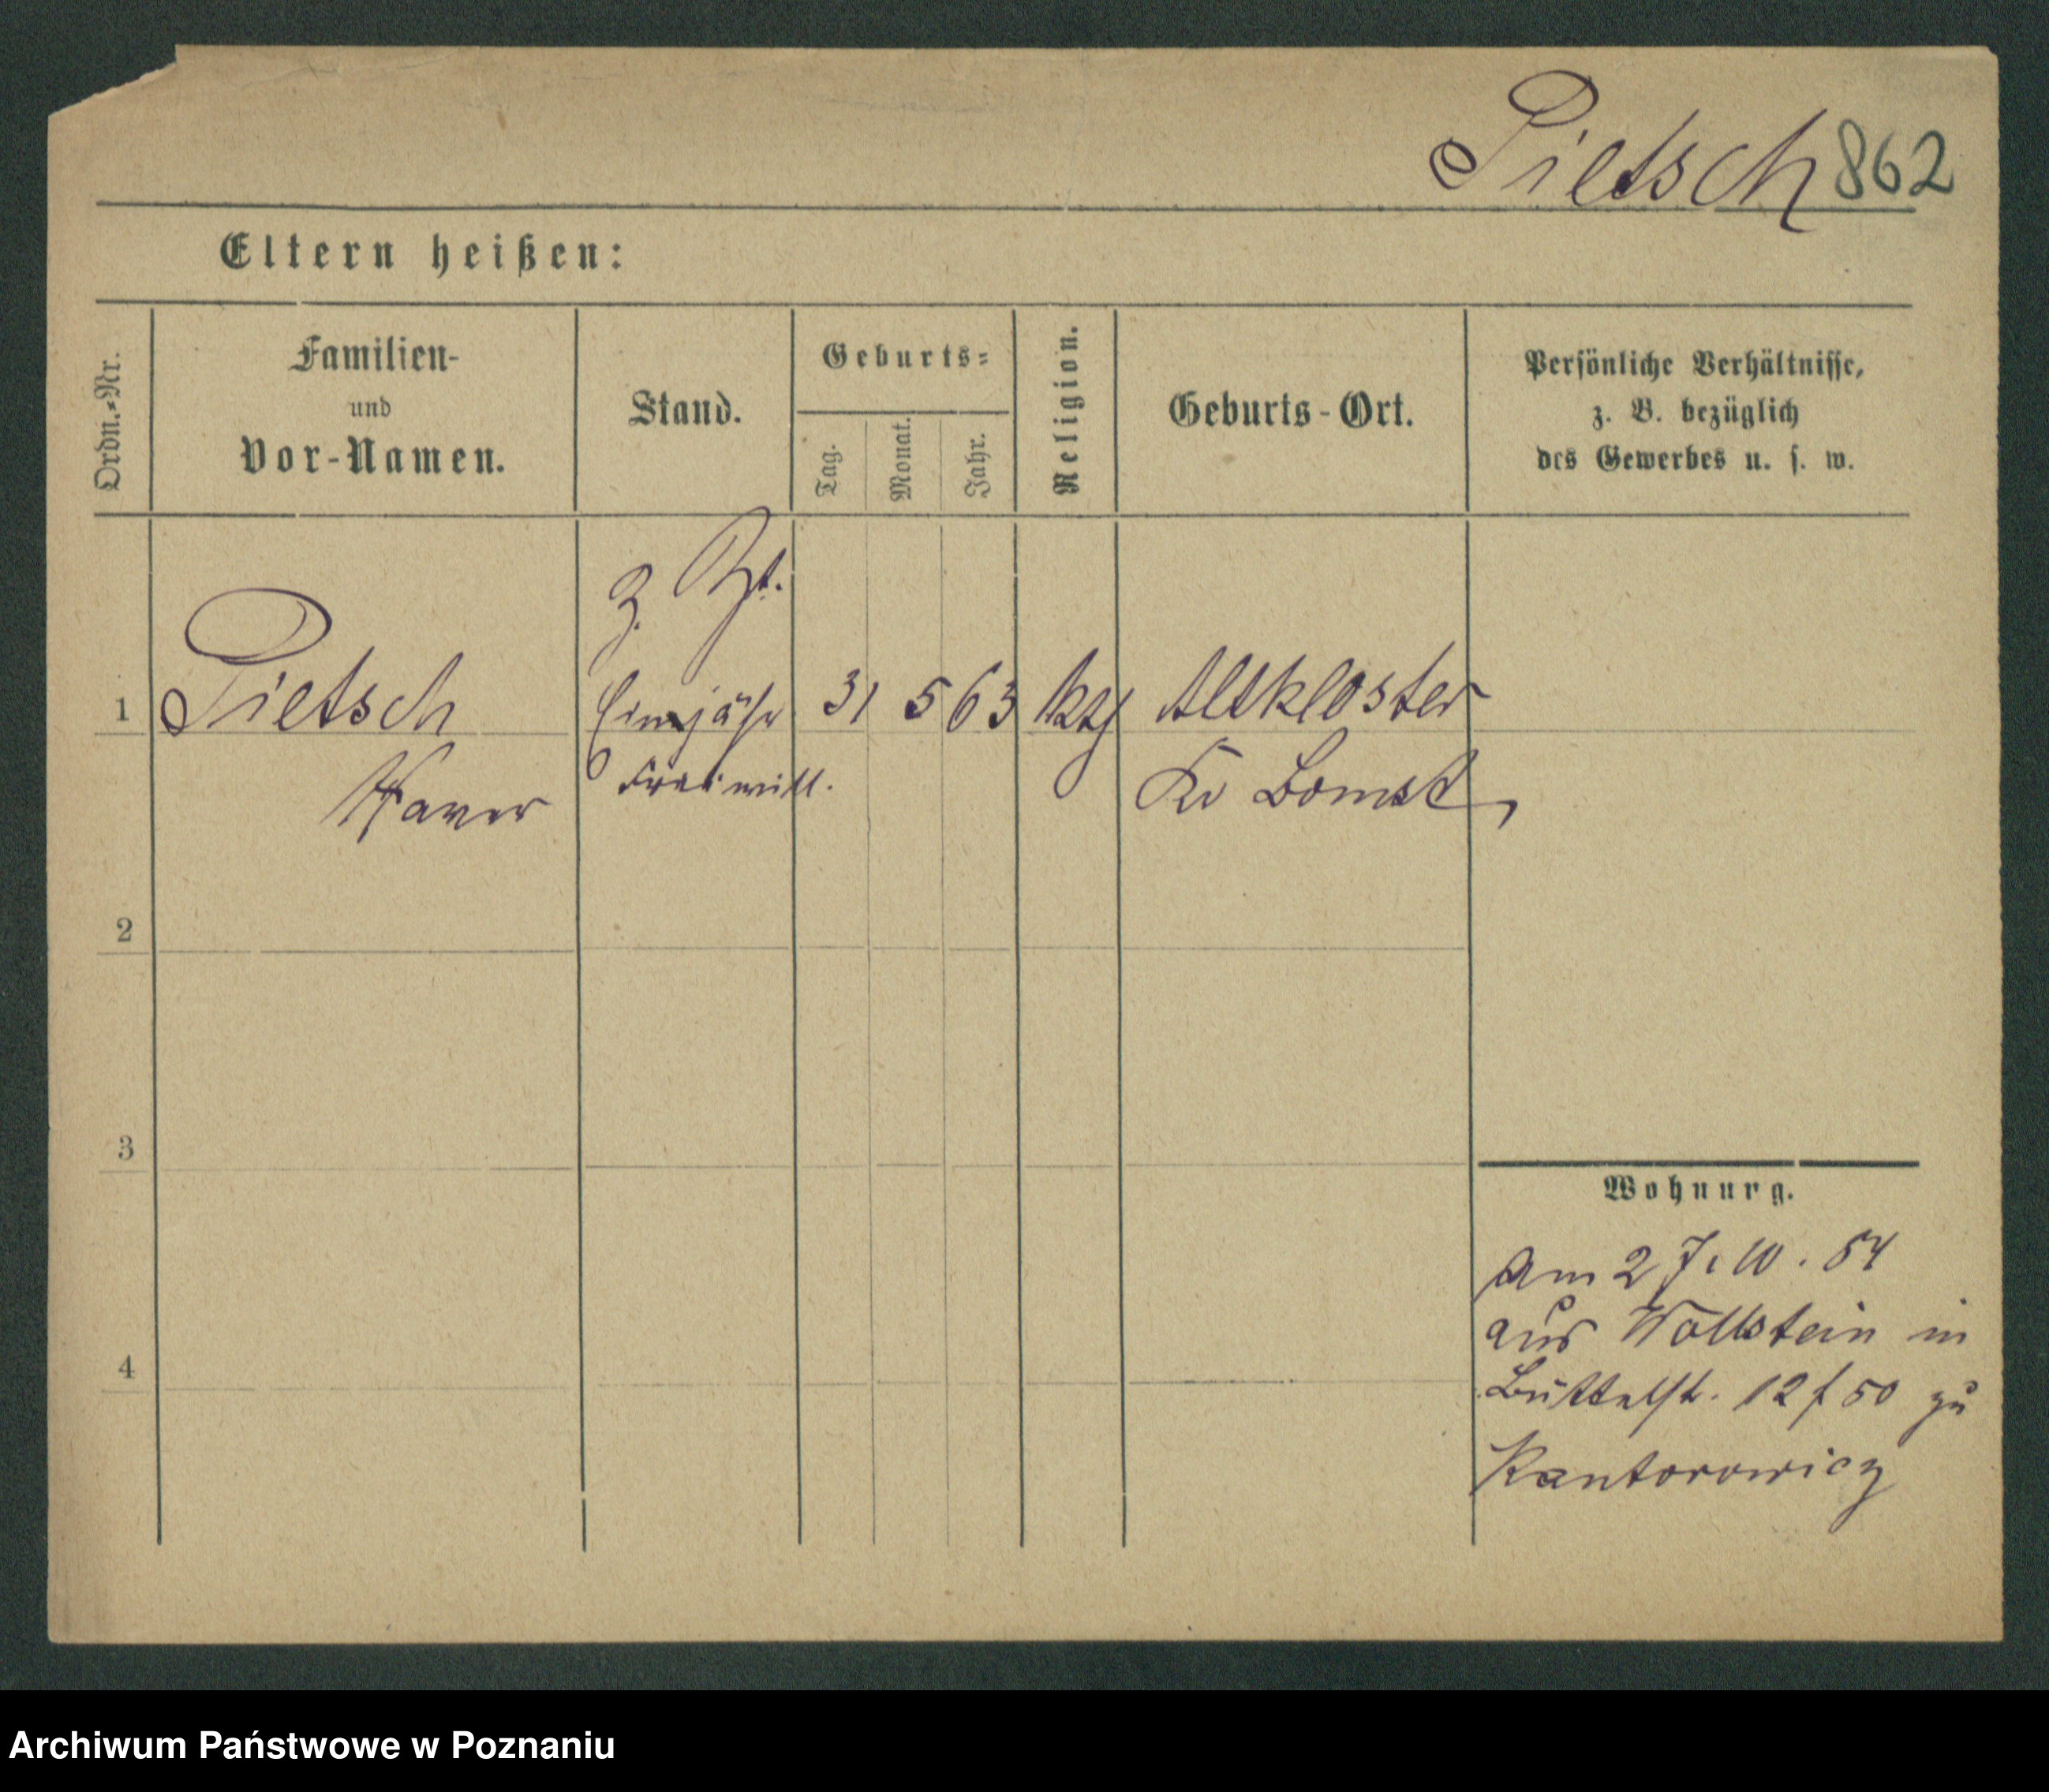 Pietsch 862
Eltern heißen:
Ordn.=Nr.
Familien-
und
Vor-Namen.
Stand.
Geburts=
Tag.
Monat.
Jahr.
Religion.
Geburts-Ort.
Persönliche Verhältnisse,
z. B. bezüglich
des Gewerbes u. s. w.
z.
1 Pietsch Einjähr 31 5 63 kth Altkloster
Xaver Freiwill. Kr Bomst
2
3
4
Wohnurg.
am 27. 10. 84
aus Wollstein in
Büttelst. 12 f 50 zu
Kantorowicz
Archiwum Państwowe w Poznaniu